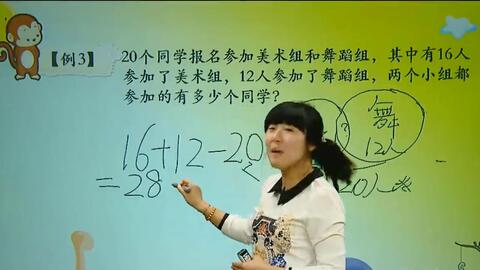 【例3】
20个同学报名参加美术组和舞蹈组，其中有16人
参加了美术组，12人参加了舞蹈组，两个小组都
参加的有多少个同学？
舞
12人
?
16+12-20
=28
20人